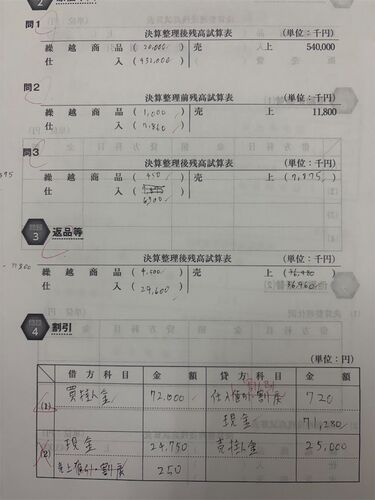 問1
決算整理後残高試算表 (単位:千円)
繰越商品 (20,000) 売上 540,000
仕入 (432,000)
問2
決算整理前残高試算表 (単位:千円)
繰越商品 (1,000) 売上 11,800
仕入 (7,860)
問3
決算整理後残高試算表 (単位:千円)
繰越商品 (450) 売上 (7,875)
仕入 ( )
6,300
問題 3 返品等
決算整理後残高試算表 (単位:千円)
繰越商品 (4,500) 売上 (36,480)
仕入 (29,600) 36,960
問題 4 割引
(単位:円)
借方科目 金額 貸方科目 金額
(1) 買掛金 72,000 仕入値引・割戻 割引 720
現金 71,280
(2) 現金 24,750 売掛金 25,000
売上値引・割戻 250